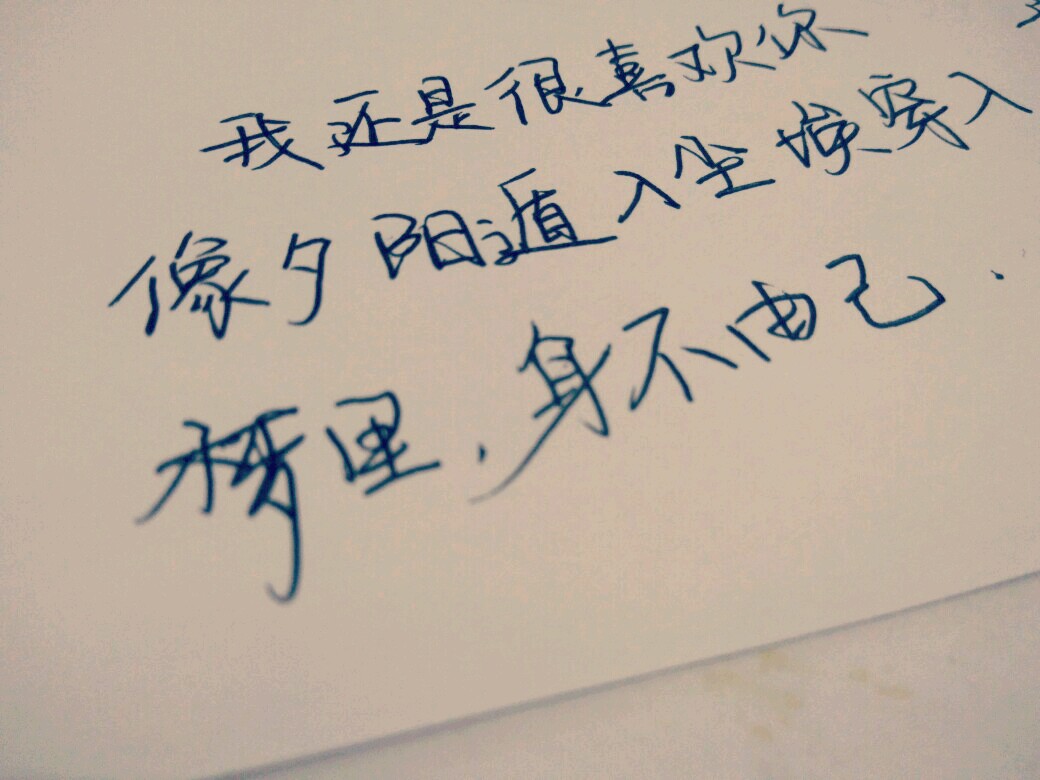 我还是很喜欢你
像夕阳遁入尘埃穿入
里，身不由己．